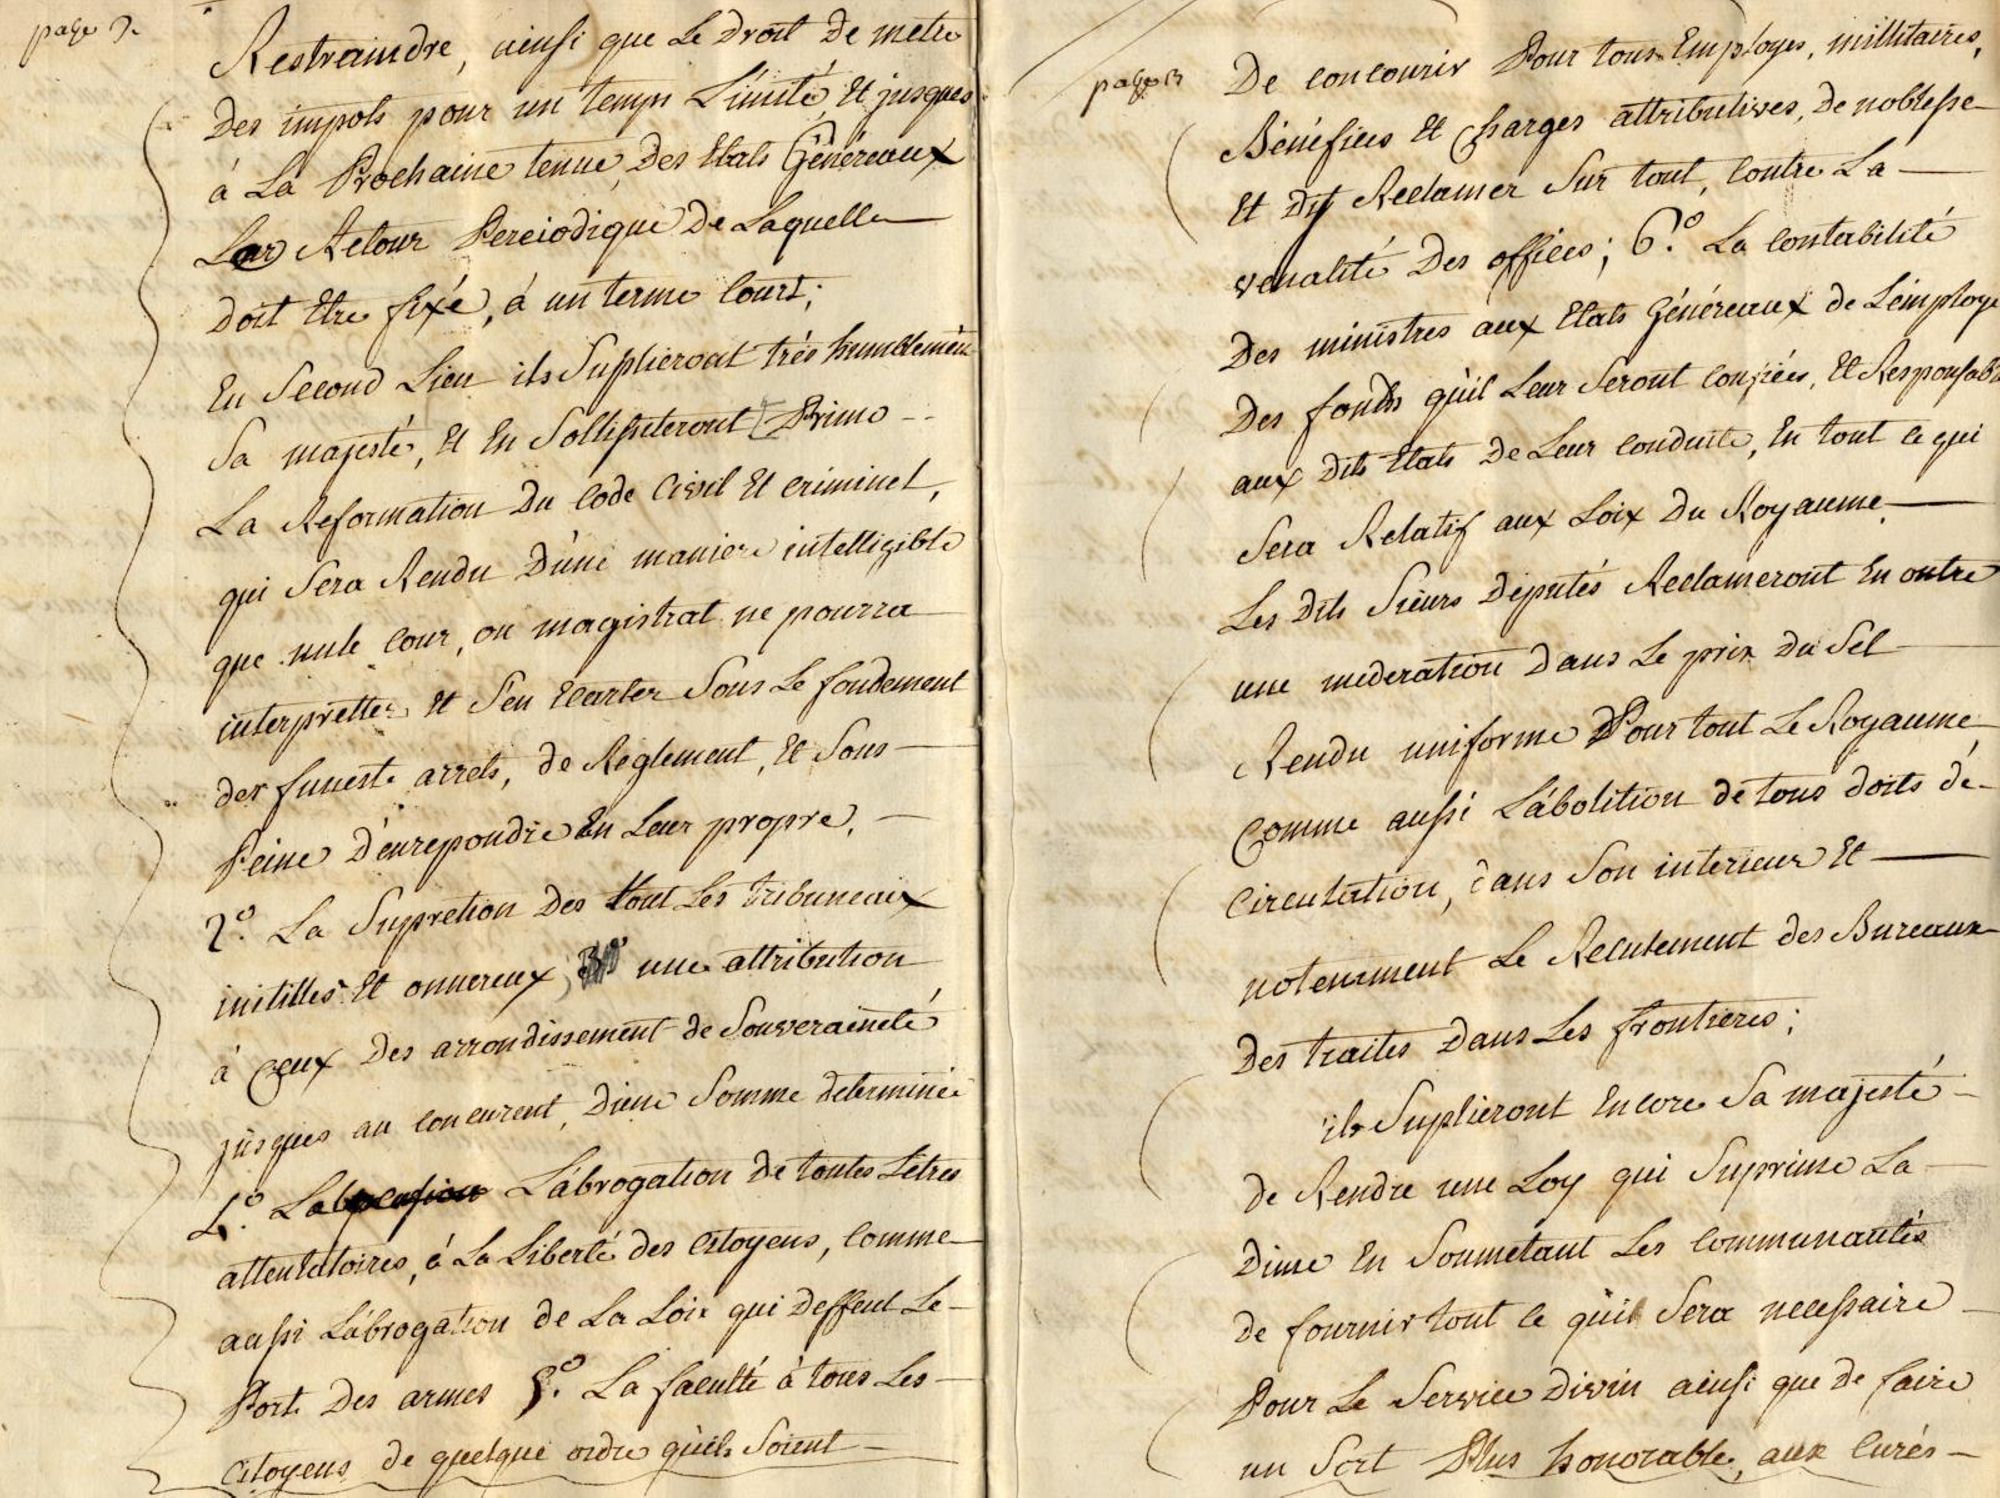 page 2
Restraindre, ainsi que Le Droit De metre
Des impots pour un temps Limité Et jusques
á La Prochaine tenue, Des Etats Généreaux
Retour Pereiodique De Laquelle
doit Etre fixé, á un terme Court;
En Second Lieu ils Suplieront trés humblement
Sa majesté, Et En Solliciteront Primo
La Reformation Du Code Civil Et criminel,
qui Sera Rendu D'une maniere intelligible
que nule Cour, ou magistrat ne pourra
interpretter Et S'en Ecarter Sous Le fondement
der funeste arrets, de Reglement, Et Sous
Peine D'enrepondre En Leur propre.
2.º La Supretion Des tout Les tribuneaux
inutilles Et onnereux, 3º une attribution
à Ceux Des arrondissement de Souveraineté
jusques au Concurent, Dune Somme determinée
4.º L'abrogation de toutes Letres
attentatoires, á La Liberté des Citoyens, Comme
aussi L'abrogation de La Loix qui Deffent Le
Port Des armes 5.º La faculté á tous Les
Citoyens de quelque ordre qu'ils Soient
page 3
De Concourir Pour tous Employes, millitaires,
Bénéfices Et Charges attributives, De noblesse
Et Reclamer Sur tout, Contre La
venalité Des offices; 6.º La Contabilité
Des ministres aux Etats Généreaux de L'employe
Des fonds qu'il Leur Seront Confiées, Et Responsable
aux Dits Etats De Leur Conduite, En tout Ce qui
Sera Relatif aux Loix Du Royaume.
Les Dits Sieurs Députés Reclameront En outre
une mederation Dans Le prix Du Sel
Rendu uniforme Pour tout Le Royaume
Comme aussi L'abolition de tous doits de
Circulation, dans Son interieur Et
notemment Le Reculement des Bureaux
Des traites Dans Les frontieres;
ils Suplieront Encore Sa majesté
de Rendre une Loy qui Suprime La
Dime En Soumetant Les Communautés
de fournir tout Ce qu'il Sera necessaire
Pour Le Service Divin ainsi que De faire
un Sort Plus honorable, aux Curés